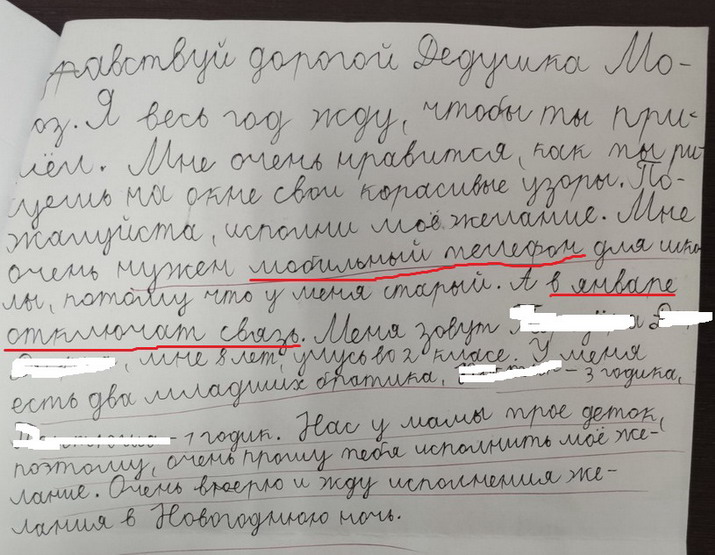 равствуй дорогой Дедушка Мо-
оз. Я весь год жду, чтобы ты при-
шёл. Мне очень нравится, как ты ри-
суешь на окне свои корасивые узоры. По-
жалуйста, исполни моё желание. Мне
очень нужен мобильный телефон для шко
лы, потому что у меня старый. А в январе
отключат связь. Меня зовут
, мне 8 лет, учусь во 2 класе. У меня
есть два младших братика, - 3 годика,
- 1 годик. Нас у мамы трое деток,
поэтому, очень прошу тебя исполнить моё же-
лание. Очень вюерю и жду исполнения же-
лания в Новогоднюю ночь.